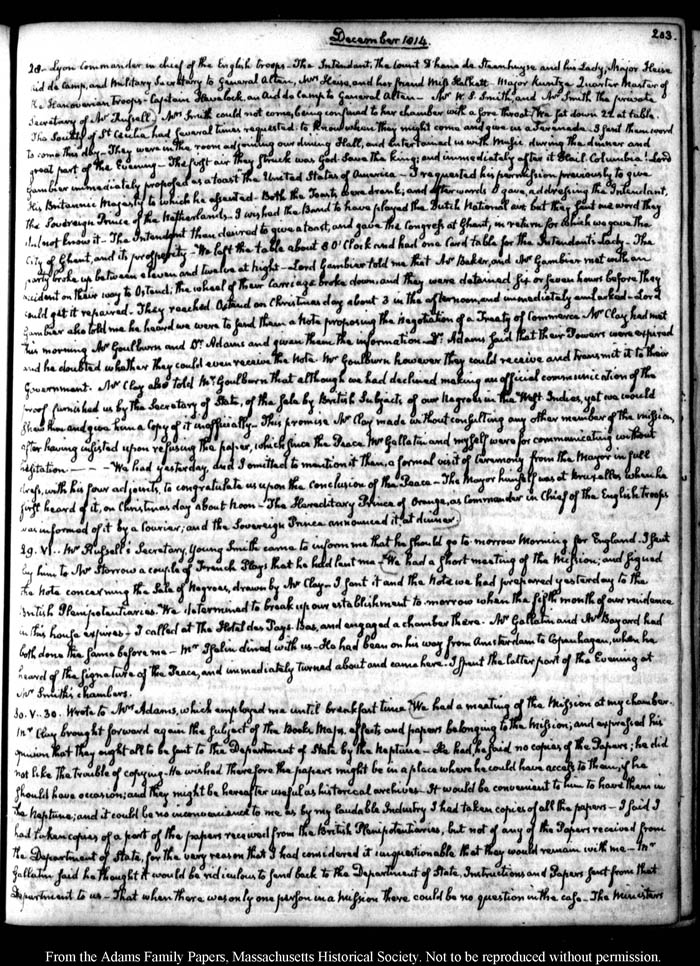 December 1814.
203.
28.- Lyon Commander in chief of the English troops - The Intendant, the Count D'hane de Steenhuyse and his Lady, Major Heise
Aid de camp, and Military Secretary to General Alten, Mrs Heise, and her friend Miss Halkett - Major Kuntze Quarter Master of
the Hanoverian troops - Captain Havelock, an Aid de Camp to General Alten - Mr W. S. Smith, and Mr Smith the private
Secretary of Mr Russell. Mrs Smith could not come, being confined to her chamber with a sore throat. We sat down 22 at table.
The Society of St Cecilia had several times requested to know when they might come and give us a Serenade. I sent them word
to come this day - They were in the room adjoining our dining Hall, and entertained us with Music during the dinner and
great part of the Evening - The first air they struck was God Save the king; and immediately after it Hail Columbia! Lord
Gambier immediately proposed as a toast the United States of America - I requested his permission previously to give
His Britannic Majesty to which he assented - Both the Toasts were drank; and afterwards I gave, addressing the Intendant,
the Sovereign Prince of the Netherlands. I wished the Band to have played the Dutch National air, but they sent me word they
did not know it - The Intendant then desired to give a toast, and gave the Congress at Ghent, in return for which we gave the
City of Ghent, and its prosperity - We left the table about 8 O'Clock and had one Card table for the Intendant's Lady - The
party broke up between eleven and twelve at night - Lord Gambier told me that Mr Baker, and Mr Gambier met with an
accident on their way to Ostend; the wheel of their Carriage broke down, and they were detained six or seven hours before they
could get it repaired. They reached Ostend on Christmas day about 3 in the afternoon, and immediately embarked - Lord
Gambier also told me he heard we were to send them a Note proposing the Negotiation of a Treaty of Commerce. Mr Clay had met
this morning Mr Goulburn and Dr Adams and given them the information - Dr Adams said that their Powers were expired
and he doubted whether they could even receive the Note. Mr Goulburn however they could receive and transmit it to their
Government. Mr Clay also told Mr Goulburn that although we had declined making an official communication of the
proof furnished us by the Secretary of State, of the sale by British Subjects of our Negroes in the West Indies, yet we would
shew him and give him a Copy of it inofficially. This promise Mr Clay made without consulting any other member of the mission,
after having insisted upon refusing the paper, which since the Peace Mr Gallatin and myself were for communicating without
hesitation - - - - We had yesterday, and I omitted to mention it then, a formal visit of Ceremony from the Mayor in full
dress, with his four adjoints, to congratulate us upon the Conclusion of the Peace - The Mayor himself was at Bruxelles, when he
first heard of it, on Christmas day about Noon - The Hereditary Prince of Orange, as Commander in Chief of the English troops
was informed of it by a Courier; and the Sovereign Prince announced it at dinner.
29. VI.. Mr Russell's Secretary, Young Smith came to inform me that he should go to-morrow Morning for England. I sent
by him to Mr Storrow a couple of French Plays that he had lent me - We had a short meeting of the Mission; and signed
the Note concerning the Sale of Negroes, drawn by Mr Clay - I sent it and the Note we had prepared yesterday to the
British Plenipotentiaries. We determined to break up our establishment to morrow when the fifth month of our residence
in this house expires - I called at the Hotel des Pays Bas, and engaged a chamber there. Mr Gallatin and Mr Bayard had
both done the same before me - Mr Iselin dined with us - He had been on his way from Amsterdam to Copenhagen, when he
heard of the signature of the Peace, and immediately turned about and came here. I spent the latter part of the Evening at
Mr Smith's chambers.
30. V.. 30. Wrote to Mrs Adams, which employed me until breakfast time. We had a meeting of the Mission at my chamber.
Mr Clay brought forward again the subject of the Books, Maps, effects and papers belonging to the Mission; and expressed his
opinion that they ought all to be sent to the Department of State by the Neptune - He had, he said no copies of the Papers; he did
not like the trouble of copying. He wished therefore the papers might be in a place where he could have access to them, if he
should have occasion; and they might be hereafter useful as historical archives. It would be convenient to him to have them in
the Neptune; and it could be no inconvenience to me as by my laudable Industry I had taken copies of all the papers - I said I
had taken copies of a part of the papers received from the British Plenipotentiaries, but not of any of the Papers received from
the Department of State, for the very reason that I had considered it unquestionable that they would remain with me - Mr
Gallatin said he thought it would be ridiculous to send back to the Department of State, Instructions and Papers sent from that
Department to us - That when there was only one person in a mission there could be no question in the case - The Ministers
From the Adams Family Papers, Massachusetts Historical Society. Not to be reproduced without permission.